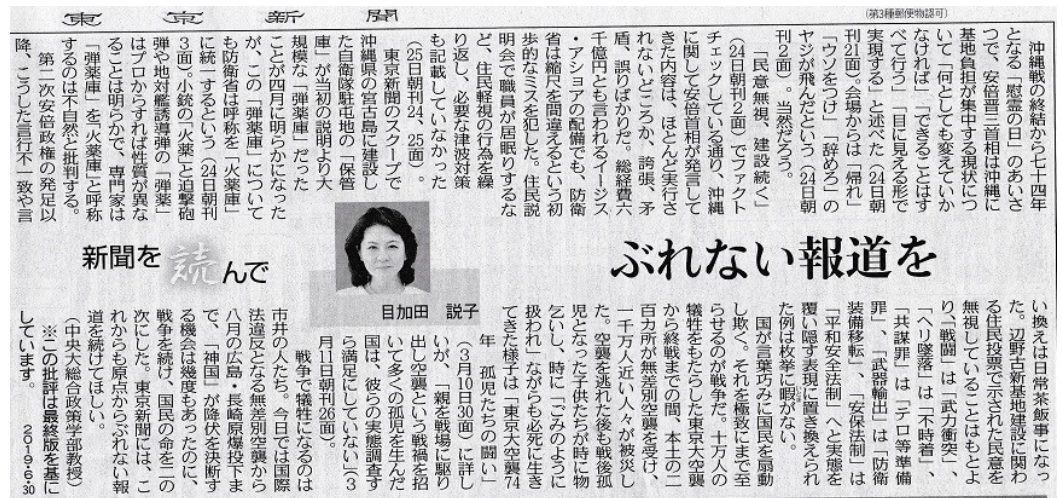 東京新聞
(第3種郵便物認可)
ぶれない報道を
新聞を読んで
目加田 説子
沖縄戦の終結から七十四年
となる「慰霊の日」のあいさ
つで、安倍晋三首相は沖縄に
基地負担が集中する現状につ
いて「何としても変えていか
なければ」「できることはす
べて行う」「目に見える形で
実現する」と述べた(24日朝
刊21面)。会場からは「帰れ」
「ウソをつけ」「辞めろ」の
ヤジが飛んだという(24日朝
刊2面)。当然だろう。
「民意無視、建設続く」
(24日朝刊2面)でファクト
チェックしている通り、沖縄
に関して安倍首相が発言して
きた内容は、ほとんど実行さ
れないどころか、誇張、矛
盾、誤りばかりだ。総経費六
千億円とも言われるイージス
・アショアの配備でも、防衛
省は縮尺を間違えるという初
歩的なミスを犯した。住民説
明会で職員が居眠りするな
ど、住民軽視の行為を繰
り返し、必要な津波対策
も記載していなかった
(25日朝刊24、25面)。
東京新聞のスクープで
沖縄県の宮古島に建設し
た自衛隊駐屯地の「保管
庫」が当初の説明より大
規模な「弾薬庫」だった
ことが四月に明らかになった
が、この「弾薬庫」について
も防衛省は呼称を「火薬庫」
に統一するという(24日朝刊
3面)。小銃の「火薬」と迫撃砲
弾や対艦誘導弾の「弾薬」
はプロからすれば性質が異な
ることは明らかで、専門家は
「弾薬庫」を「火薬庫」と呼称
するのは不自然と批判する。
第二次安倍政権の発足以
降、こうした言行不一致や言
い換えは日常茶飯事になっ
た。辺野古新基地建設に関わ
る住民投票で示された民意を
無視していることはもとよ
り、「戦闘」は「武力衝突」、
「ヘリ墜落」は「不時着」、
「共謀罪」は「テロ等準備
罪」、「武器輸出」は「防衛
装備移転」、「安保法制」は
「平和安全法制」へと実態を
覆い隠す表現に置き換えられ
た例は枚挙に暇がない。
国が言葉巧みに国民を扇動
し欺く。それを極致にまで至
らせるのが戦争だ。十万人の
犠牲をもたらした東京大空襲
から終戦までの間、本土の二
百カ所が無差別空襲を受け、
一千万人近い人々が被災し
た。空襲を逃れた後も戦後孤
児となった子供たちが時に物
乞いし、時に「ごみのように
扱われ」ながらも必死に生き
てきた様子は「東京大空襲74
年 孤児たちの闘い」
(3月10日30面)に詳し
いが、「親を戦場に駆り
出し空襲という戦禍を招
いて多くの孤児を生んだ
国は、彼らの実態調査す
ら満足にしていない」(3
月11日朝刊26面)。
戦争で犠牲になるのは
市井の人たち。今日では国際
法違反となる無差別空襲から
八月の広島・長崎原爆投下ま
で、「神国」が降伏を決断す
る機会は幾度もあったのに、
戦争を続け、国民の命を二の
次にした。東京新聞には、こ
れからも原点からぶれない報
道を続けてほしい。
(中央大総合政策学部教授)
※この批評は最終版を基に
しています。 2019・6・30